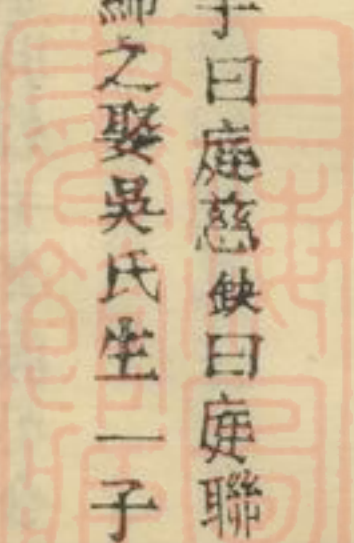 子曰庭慈缺曰庭聯
綿之娶吳氏生一子